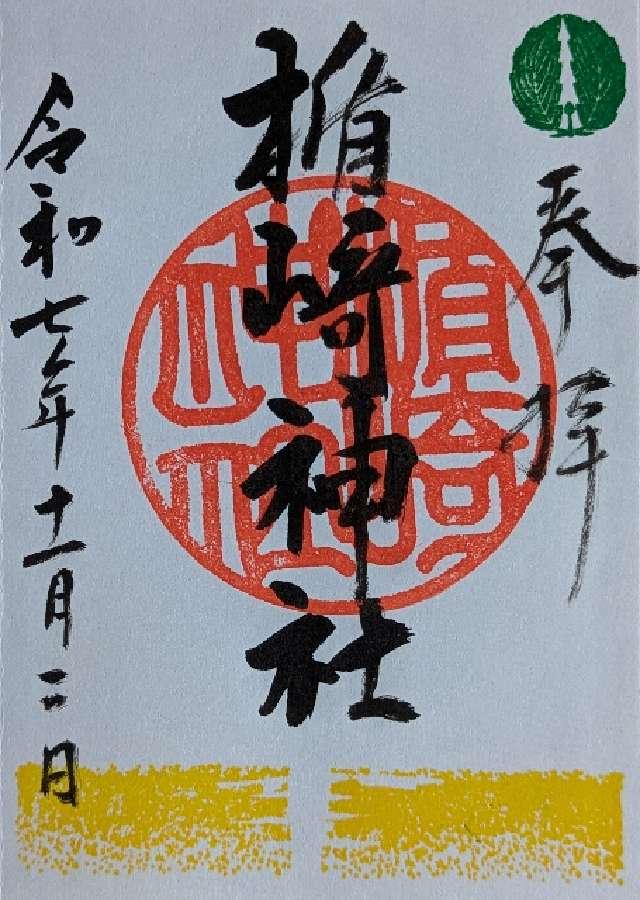 奉拝
楯﨑神社
令和七年十一月二日